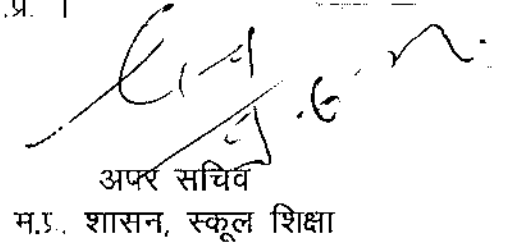 .प्र. ।
अपर सचिव
म.प्र. शासन, स्कूल शिक्षा